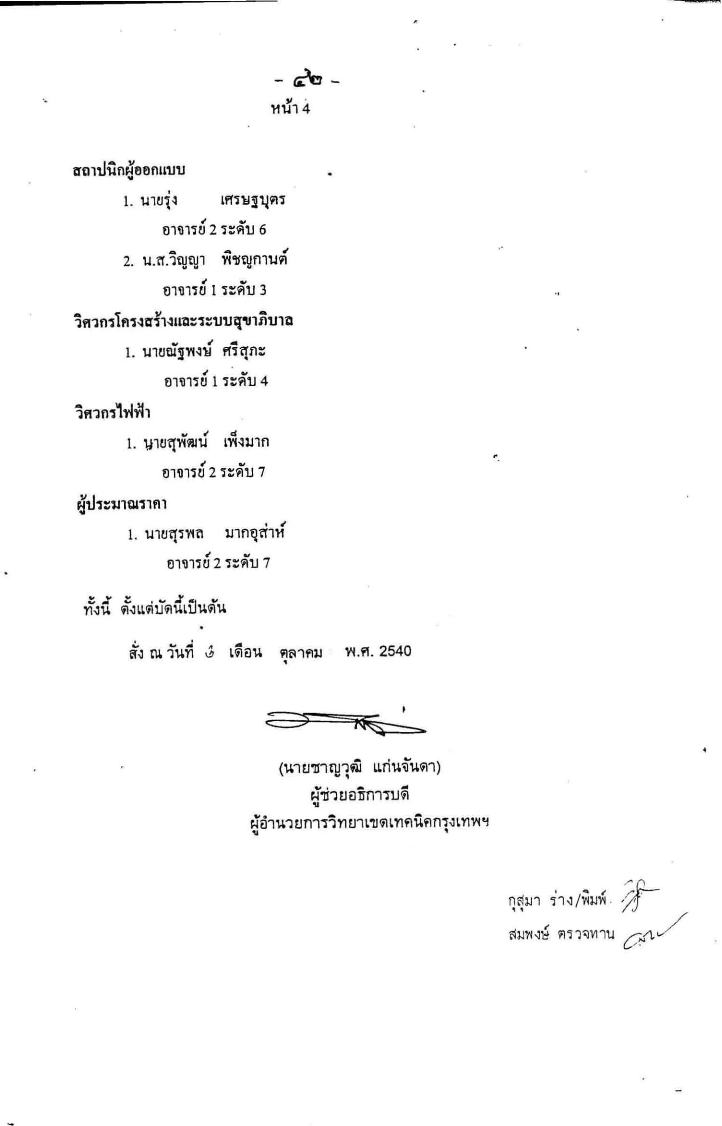 - ๔๒ -
หน้า 4
สถาปนิกผู้ออกแบบ
1. นายรุ่ง เศรษฐบุตร
อาจารย์ 2 ระดับ 6
2. น.ส.วิญญา พิชญกานต์
อาจารย์ 1 ระดับ 3
วิศวกรโครงสร้างและระบบสุขาภิบาล
1. นายณัฐพงษ์ ศรีสุภะ
อาจารย์ 1 ระดับ 4
วิศวกรไฟฟ้า
1. นายสุพัฒน์ เพ็งมาก
อาจารย์ 2 ระดับ 7
ผู้ประมาณราคา
1. นายสุรพล มากอุส่าห์
อาจารย์ 2 ระดับ 7
ทั้งนี้ ตั้งแต่บัดนี้เป็นต้น
สั่ง ณ วันที่ เดือน ตุลาคม พ.ศ. 2540
(นายชาญวุฒิ แก่นจันดา)
ผู้ช่วยอธิการบดี
ผู้อำนวยการวิทยาเขตเทคนิคกรุงเทพฯ
กุสุมา ร่าง/พิมพ์
สมพงษ์ ตรวจทาน